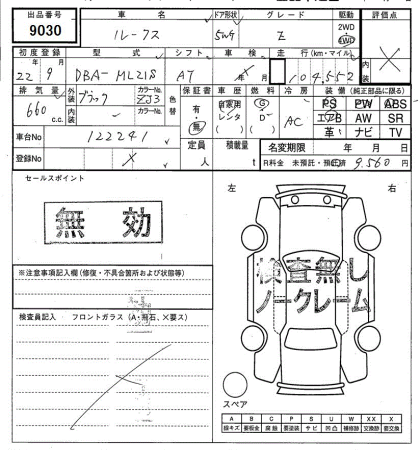 出品番号 車名 ドア形状 グレード 駆動 評価点
9030 ルークス 5W Z 2WD 4WD
初度登録 型式 シフト 車検 走行(km・マイル) 内装
22年 9月 DBA-ML21S AT 年 × 月 104,552
排気量 外装 カラーNo. 色替 保証書 車歴 燃料 冷房 装備(純正部品に限る)
660 c.c. ブラック ZJ3 有・無 自家用 レンタ G D AC PS PW ABS
内装 カラーNo. エアB AW SR
車台No 122241 定員 積載量 革 ナビ TV
人 t 名変期限 年 月 日
登録No × R料金 未預託・預託済 9,560 円
セールスポイント 左 右
無効
検査無し
ノークレーム
※注意事項記入欄(修復・不具合箇所および状態等)
検査員記入 フロントガラス(A・飛石、×要ス)
スペア
A B C P S U W X XX
線キズ 要板金 腐蝕 要塗装 サビ 凹凸 補修跡 交換跡 要交換